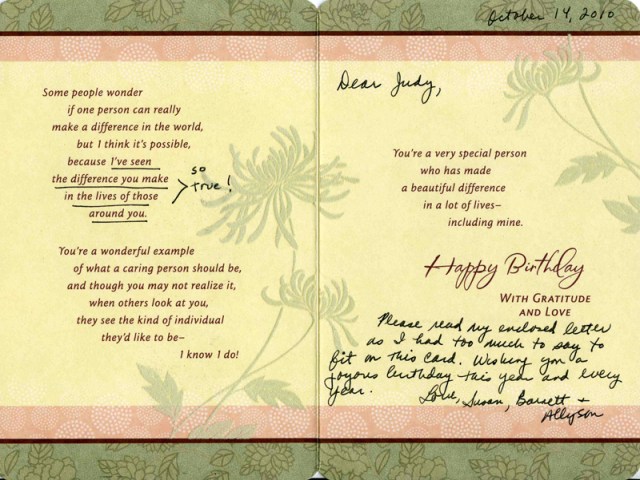 Some people wonder
if one person can really
make a difference in the world,
but I think it's possible,
because I've seen
the difference you make
in the lives of those
around you.
so
true!
You're a wonderful example
of what a caring person should be,
and though you may not realize it,
when others look at you,
they see the kind of individual
they'd like to be–
I know I do!
October 14, 2010
Dear Judy,
You're a very special person
who has made
a beautiful difference
in a lot of lives–
including mine.
Happy Birthday
With Gratitude
and Love
Please read my enclosed letter
as I had too much to say to
fit on this card. Wishing you a
joyous birthday this year and every
year. Love, Susan, Barrett +
Allyson